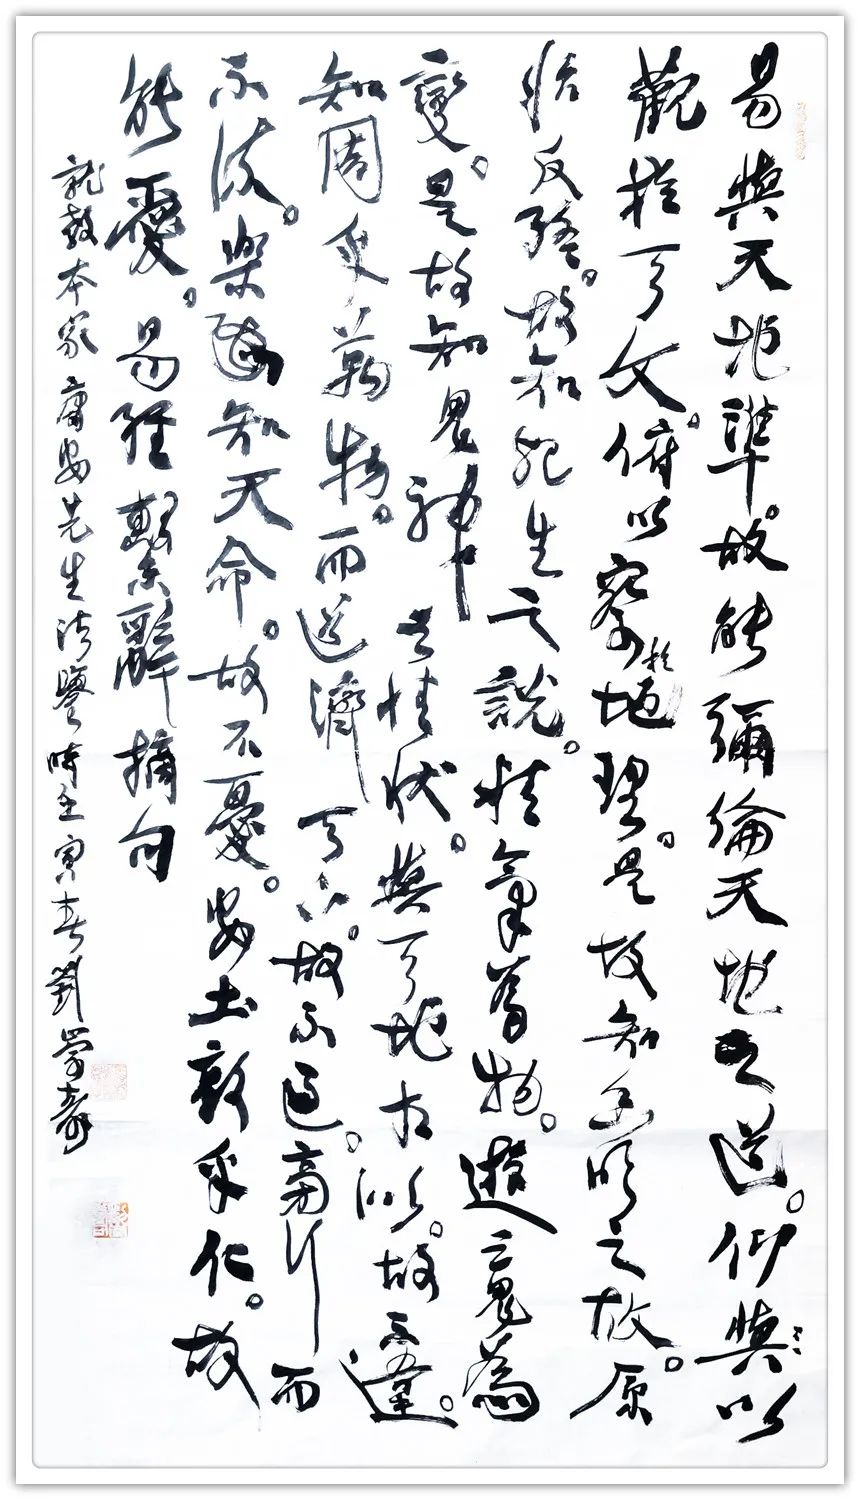 易與天地準。故能彌綸天地之道。仰與以
觀於天文。俯以察於地理。是故知幽明之故。原
始反終。故知死生之說。精氣為物。遊魂為
變。是故知鬼神之情狀。與天地相似。故不違。
知周乎萬物。而道濟天下。故不過。旁行而
不流。樂知天命。故不憂。安土敦乎仁。故
能愛。易經繫辭摘句
就教本家庸安先生法鑒時壬寅春劉崇壽